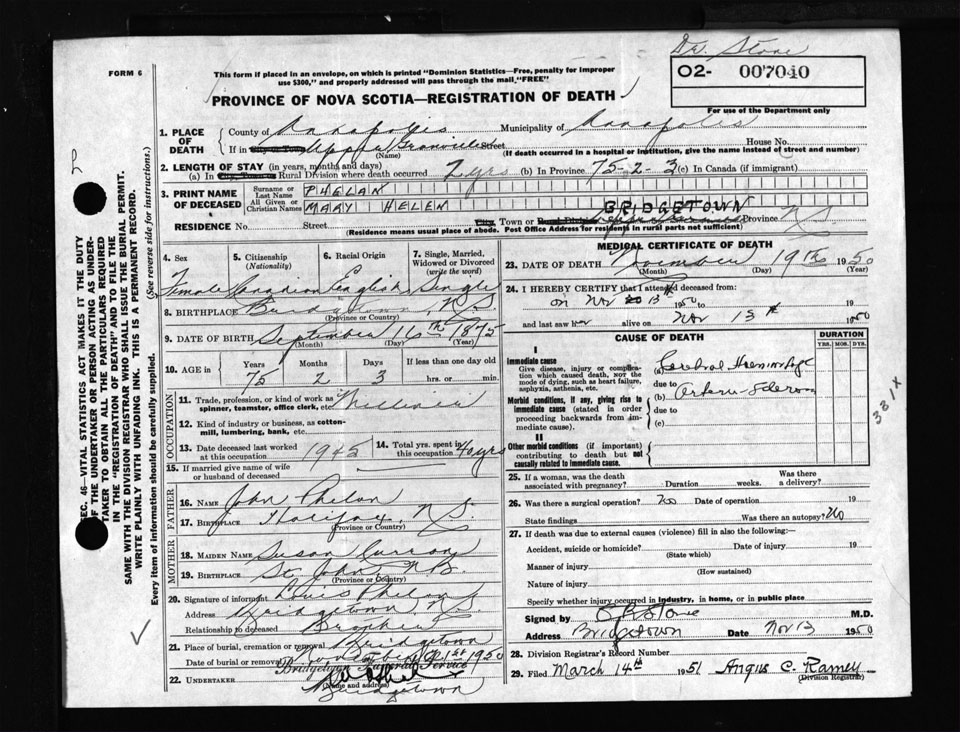 Dr. Stone
02- 007040
For use of the Department only
FORM 6
This form if placed in an envelope, on which is printed "Dominion Statistics—Free, penalty for improper
use $300," and properly addressed will pass through the mail "FREE"
PROVINCE OF NOVA SCOTIA—REGISTRATION OF DEATH
1. PLACE OF DEATH
County of Annapolis Municipality of Annapolis
If in Upper Granville Street House No.
(Name) (If death occurred in a hospital or institution, give the name instead of street and number)
2. LENGTH OF STAY (in years, months and days)
(a) In Rural Division where death occurred 2 yrs (b) In Province 75-2-3 (c) In Canada (if immigrant)
3. PRINT NAME OF DECEASED
Surname or Last Name PHELAN
All Given or Christian Names MARY HELEN
BRIDGETOWN
RESIDENCE No. Street City, Town or Rural Province N S
(Residence means usual place of abode. Post Office Address for residents in rural parts not sufficient)
4. Sex 5. Citizenship (Nationality) 6. Racial Origin 7. Single, Married, Widowed or Divorced (write the word)
Female Canadian English Single
8. BIRTHPLACE Bridgetown, N.S.
(Province or Country)
9. DATE OF BIRTH September 16th 1875
(Month) (Day) (Year)
10. AGE in Years Months Days If less than one day old
75 2 3 hrs. or min.
OCCUPATION
11. Trade, profession, or kind of work as spinner, teamster, office clerk, etc. Milliner
12. Kind of industry or business, as cotton-mill, lumbering, bank, etc.
13. Date deceased last worked at this occupation 1945
14. Total yrs. spent in this occupation 40 yrs
15. If married give name of wife or husband of deceased
FATHER
16. NAME John Phelan
17. BIRTHPLACE Halifax N.S.
(Province or Country)
MOTHER
18. MAIDEN NAME Susan Curran
19. BIRTHPLACE St. John N.B.
(Province or Country)
20. Signature of informant Louis Phelan
Address Bridgetown N.S.
Relationship to deceased Brother
21. Place of burial, cremation or removal Bridgetown
Date of burial or removal November 21st 1950
Bridgetown Funeral Service
22. UNDERTAKER
(Name and address) Bridgetown
MEDICAL CERTIFICATE OF DEATH
23. DATE OF DEATH November 19th 1950
(Month) (Day) (Year)
24. I HEREBY CERTIFY that I attended deceased from:
on Nov 13th 1950 to 19
and last saw her alive on Nov 13th 1950
CAUSE OF DEATH
DURATION
YRS. MOS. DYS.
I
Immediate cause
Give disease, injury or complication which caused death, not the mode of dying, such as heart failure, asphyxia, asthenia, etc.
(a) Cerebral Haemorrhage
due to
Morbid conditions, if any, giving rise to immediate cause (stated in order proceeding backwards from immediate cause).
(b) Arterio-Sclerosis
due to
(c)
331X
II
Other morbid conditions (if important) contributing to death but not causally related to immediate cause.
25. If a woman, was the death associated with pregnancy? Duration weeks. Was there a delivery?
26. Was there a surgical operation? No Date of operation 19
State findings Was there an autopsy? No
27. If death was due to external causes (violence) fill in also the following:—
Accident, suicide or homicide? Date of injury 19
(State which)
Manner of injury
(How sustained)
Nature of injury
Specify whether injury occurred in industry, in home, or in public place
Signed by M.D.
Address Bridgetown Date Nov 13 1950
28. Division Registrar's Record Number
29. Filed March 14th 1951 Angus C. Ramey
(Division Registrar)
SEC. 46—VITAL STATISTICS ACT MAKES IT THE DUTY
OF THE UNDERTAKER OR PERSON ACTING AS UNDER-
TAKER TO OBTAIN ALL THE PARTICULARS REQUIRED
IN THE "REGISTRATION OF DEATH" AND TO FILE THE
SAME WITH THE DIVISION REGISTRAR WHO SHALL ISSUE THE BURIAL PERMIT.
WRITE PLAINLY WITH UNFADING INK. THIS IS A PERMANENT RECORD.
Every item of information should be carefully supplied. (See reverse side for instructions.)